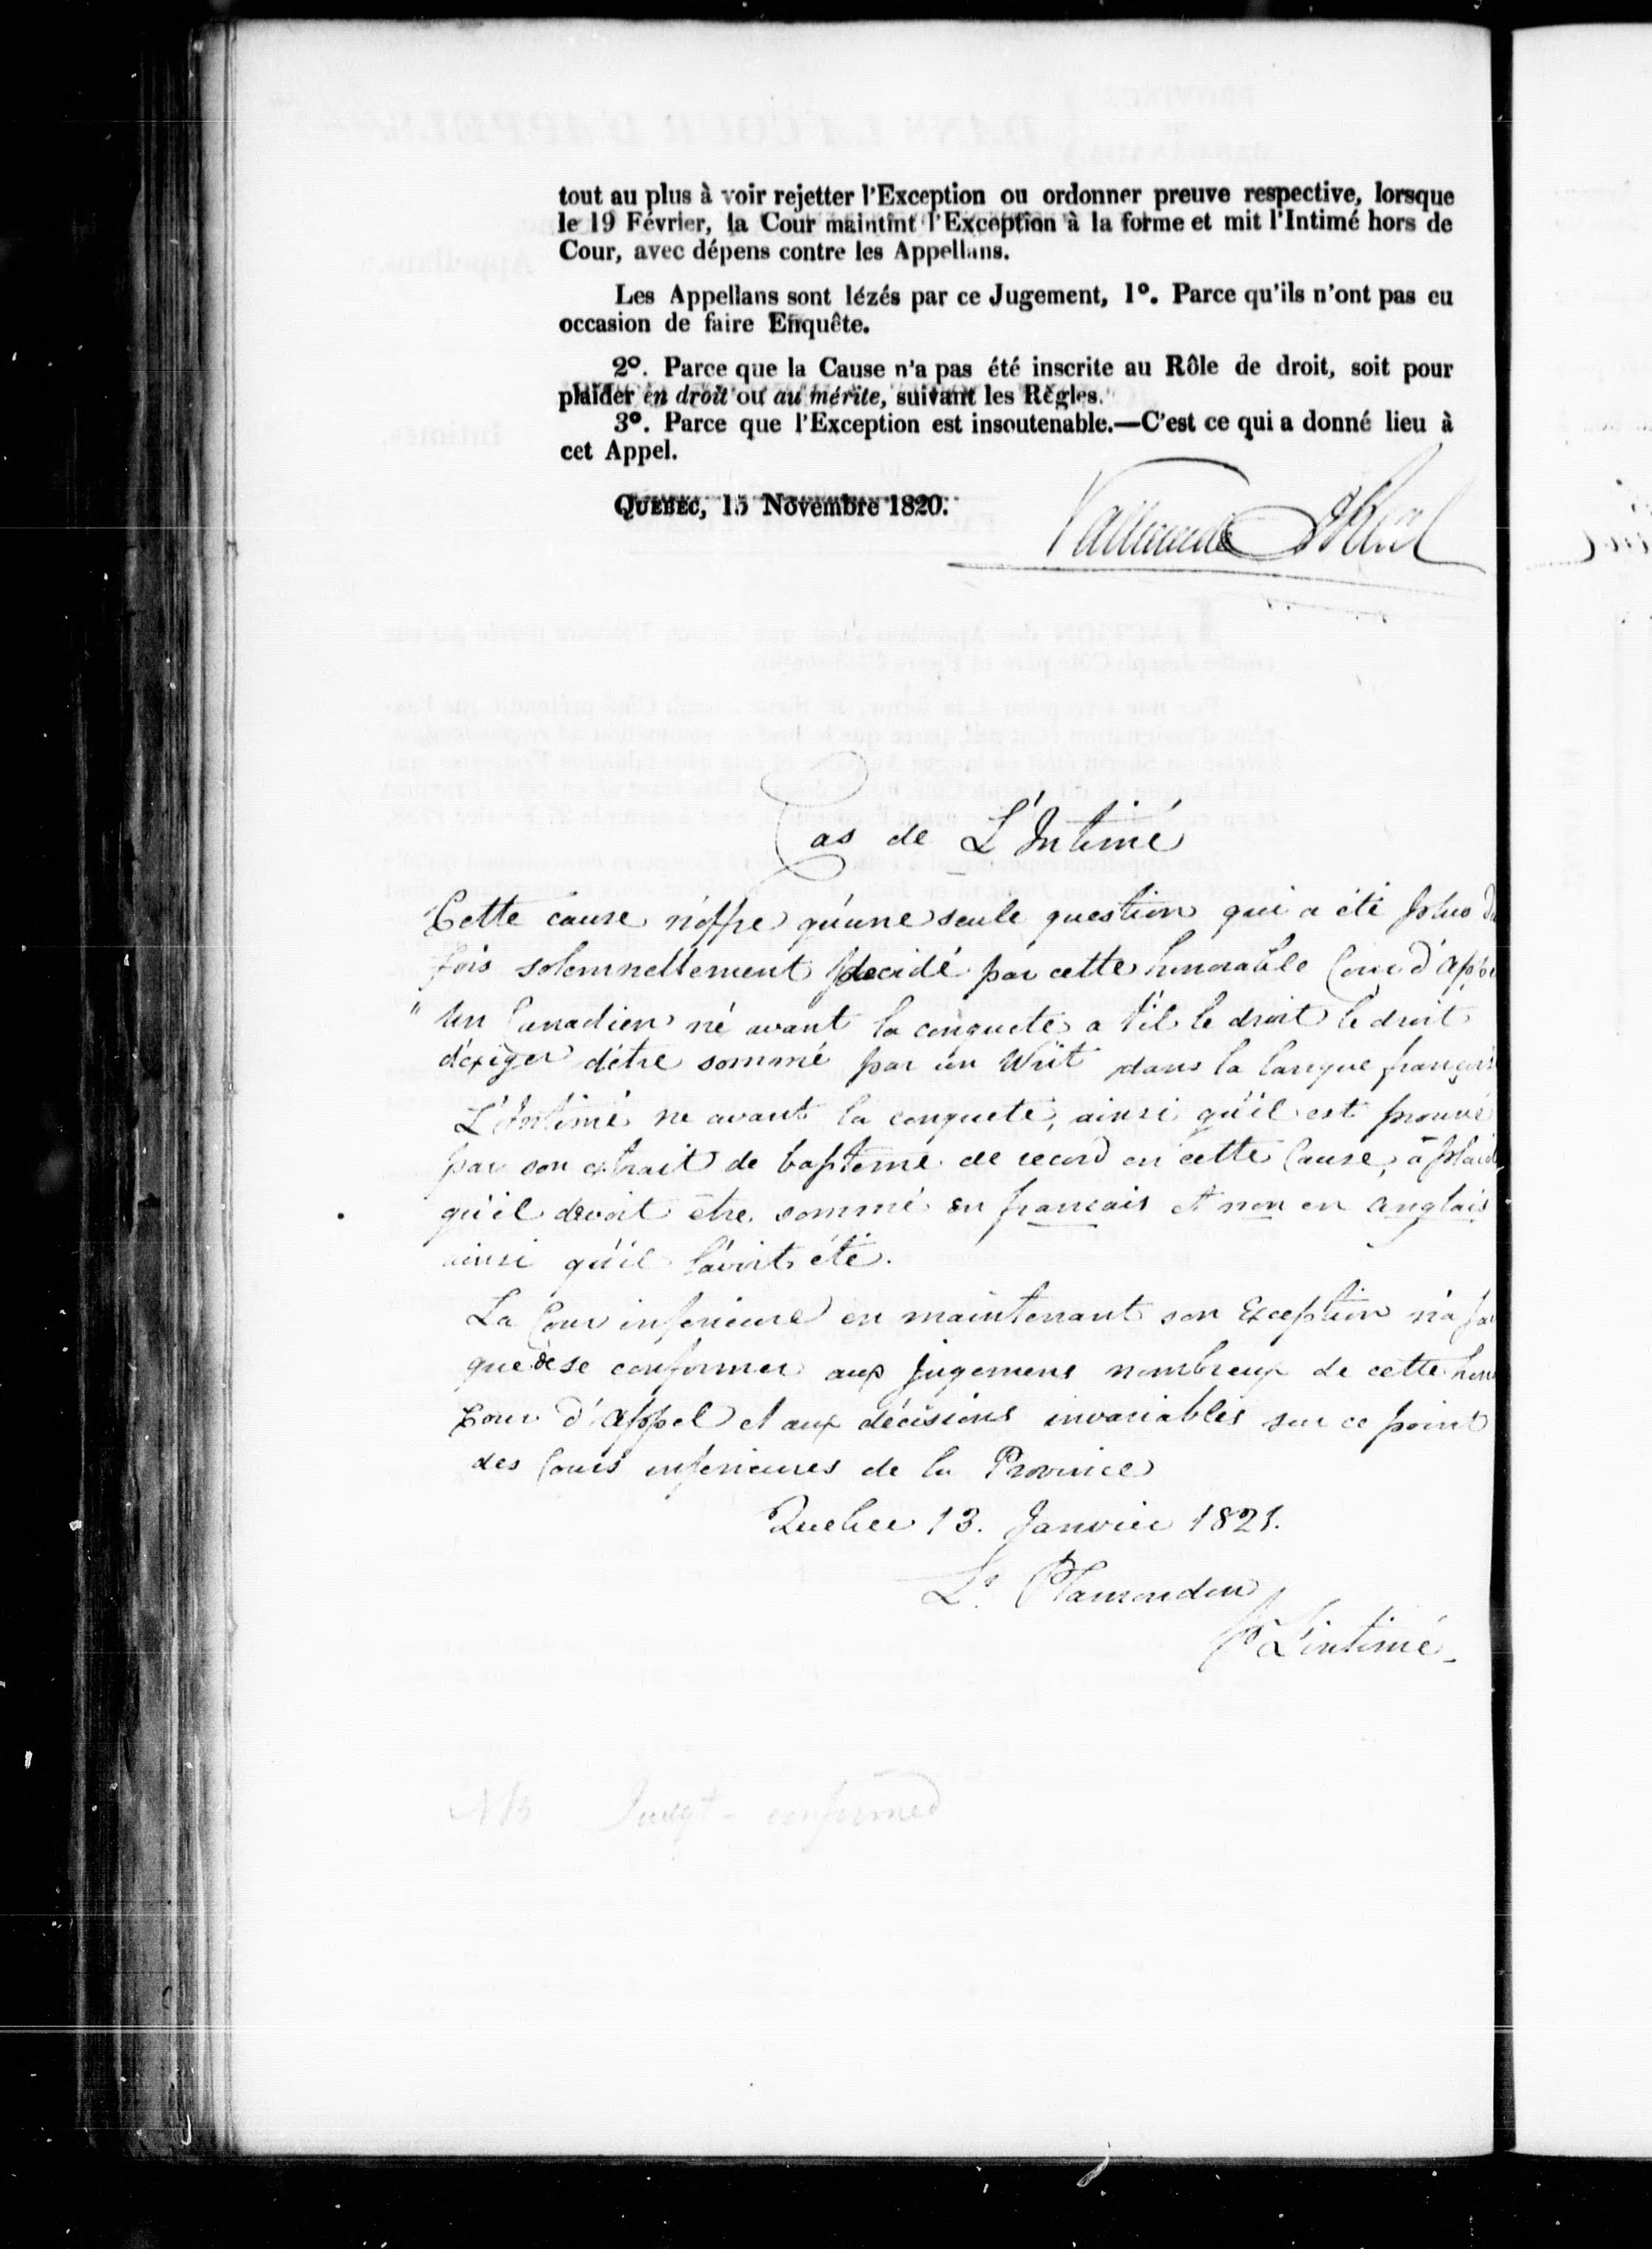 tout au plus à voir rejetter l'Exception ou ordonner preuve respective, lorsque
le 19 Février, la Cour maintint l'Exception à la forme et mit l'Intimé hors de
Cour, avec dépens contre les Appellans.
Les Appellans sont lézés par ce Jugement, 1º. Parce qu'ils n'ont pas eu
occasion de faire Enquête.
2º. Parce que la Cause n'a pas été inscrite au Rôle de droit, soit pour
plaider en droit ou au mérite, suivant les Règles.
3º. Parce que l'Exception est insoutenable.—C'est ce qui a donné lieu à
cet Appel.
QUEBEC, 15 Novembre 1820.
Cas de L'Intimé
Cette cause n'offre qu'une seule question qui a été plus
fois solemnellement decidé par cette honorable Cour d'Appe
" Un Canadien né avant la conquete a t'il le droit le droit
d'exiger d'etre sommé par un Writ dans la langue français
L'Intimé ne avant la conquete, ainsi qu'il est prouvé
par son extrait de bapteme de record en cette Cause, a plaid
qu'il devoit être sommé en francais et non en anglais
ainsi qu'il l'avoit été.
La Cour inferieure en maintenant son Exception n'a fa
que de se conformer aux jugemens nombreux de cette hon
Cour d'Appel et aux décisions invariables sur ce point
des Cours inferieures de la Province
Quebec 13. Janvier 1821.
Ls. Plamondon
Pr L'intimé.
Judgt- confirmed